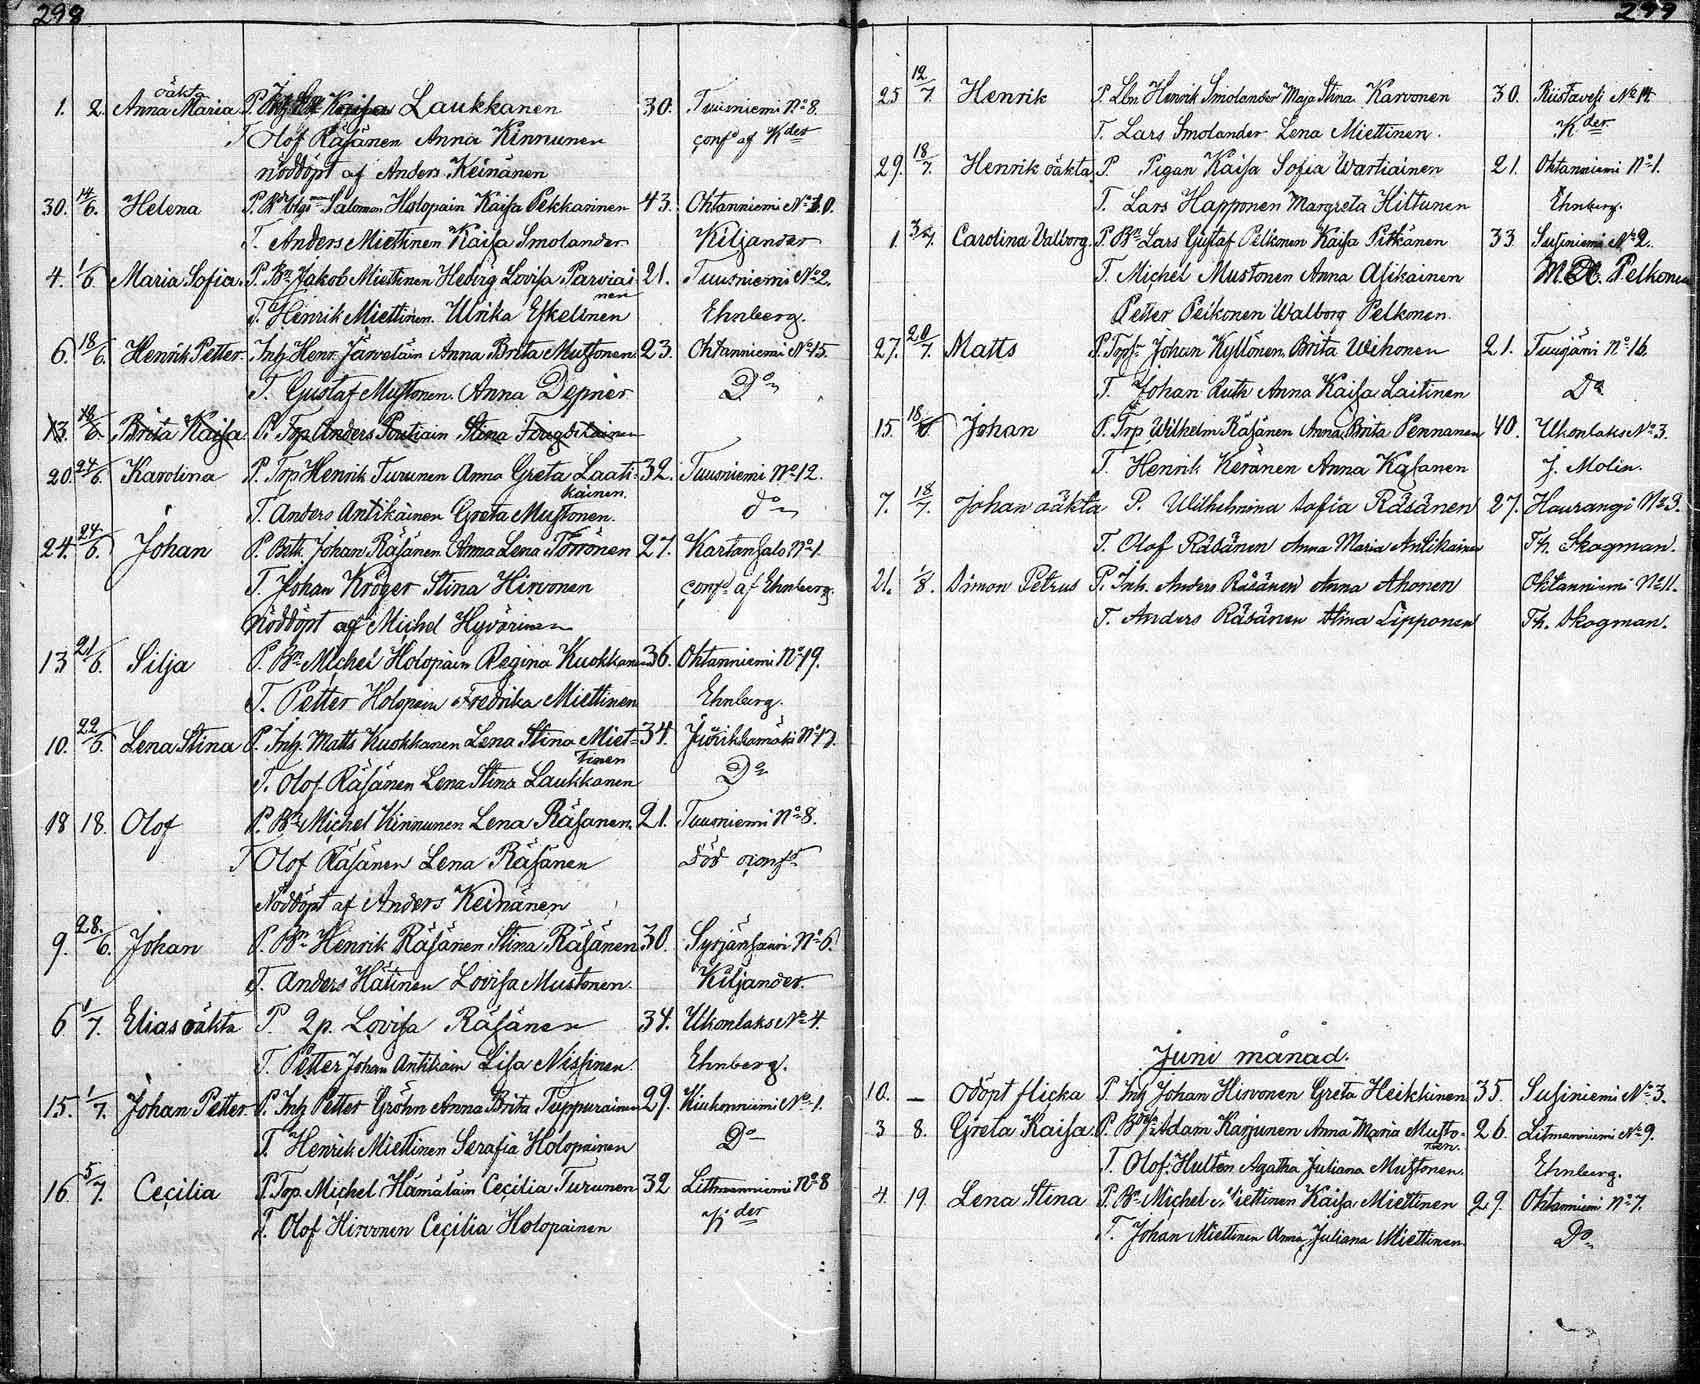 298
oäkta
1. 2. Anna Maria P. Kaisa Laukkanen 30. Tuusniemi No 8.
T Olof Räsänen Anna Kinnunen conf af Kder
nöddöpt af Anders Keinänen
30. 14/6. Helena P. Salomon Holopain Kaisa Pekkarinen 43. Ohtanniemi No 10.
T. Anders Miettinen Kaisa Smolander Kiljander
4. 1/6 Maria Sofia P. Bn Jakob Miettinen Hedvig Lovisa Parviai- 21. Tuusniemi No 2.
nen
T. Henrik Miettinen. Ulrika Eskelinen Ehnberg.
6. 18/6. Henrik Petter Inh. Henr. Järveläin Anna Brita Mustonen 23. Ohtanniemi No 15.
T. Gustaf Mustonen. Anna Depner Do
13. 18/6 Brita Kaisa P. Trp Anders Stina
20. 24/6. Karolina P. Trp Henrik Turunen Anna Greta Laati- 32. Tuusniemi No 12.
kainen.
T. Anders Antikäinen Greta Mustonen. do
24. 24/6. Johan P. Betl. Johan Räsänen Anna Lena Törrönen 27. Kartansalo No 1.
T. Johan Kröger Stina Hirvonen conf. af Ehnberg.
Nöddöpt af Michel Hyvärinen
13 21/6. Silja P. Bn Michel Holopain Regina Kuokkanen 36. Ohtanniemi No 19.
T. Petter Holopain Fredrika Miettinen Ehnberg.
10. 22/6. Lena Stina P. Inh. Matts Kuokkanen Lena Stina Miet- 34. Juurikkamäki No
tinen
T. Olof Räsänen Lena Stina Laukkanen Do
18 18. Olof P. Bn Michel Kinnunen Lena Räsänen. 21. Tuusniemi No 8.
T Olof Räsänen Lena Räsänen död
Nöddöpt af Anders Keinänen
9. 28/6. Johan P. Bn Henrik Räsänen Stina Räsänen 30. Syrjänsaari No 6.
T. Anders Hätinen Lovisa Mustonen. Kiljander.
6 1/7. Elias oäkta P. Lovisa Räsänen 34. Ukonlaks No 4.
T. Petter Johan Antikain Lisa Nissinen. Ehnberg.
15. 1/7. Johan Petter P. Inh. Petter Gröhn Anna Brita Tuppurainen 29. Kiukonniemi No 1.
T. Henrik Miettinen Serafia Holopainen Do
16. 5/7. Cecilia P. Trp. Michel Hämäläin Cecilia Turunen 32 Litmanniemi No 8
T. Olof Hirvonen Cecilia Holopainen Kder
299
25 12/7. Henrik P. Lbn Henrik Smolander Maja Stina Karvonen 30. Riistavesi No 14.
T. Lars Smolander Lena Miettinen. Kder
29. 18/7. Henrik oäkta P. Pigan Kaisa Sofia Wartiainen 21. Ohtanniemi No 1.
T. Lars Happonen Margreta Hiltunen Ehnberg.
1. Carolina Valborg P. Bn Lars Gustaf Pelkonen Kaisa Pitkänen 33 Susiniemi No 2.
T. Michel Mustonen Anna Asikainen Pelkonen
Petter Pelkonen Walborg Pelkonen.
27. 20/7. Matts P. Johan Kyllönen Brita Wihonen 21. Tuusjärvi No 16.
T. Johan Ruth Anna Kaisa Laitinen Do
15. 18/6 Johan P. Trp Wilhelm Räsänen Anna Brita Pennanen 40. Ukonlaks No 3.
T. Henrik Keränen Anna Kasanen J. Molin.
7. 18/7. Johan oäkta P. Wilhelmina Sofia Räsänen 27. Haurangi No 3.
T. Olof Räsänen Anna Maria Antikainen Th. Skogman.
21. 1/8. Simon Petrus P. Inh. Anders Räsänen Anna Ahonen Ohtanniemi No 11.
T. Anders Räsänen Stina Lipponen Th. Skogman.
Juni månad.
10. — Odöpt flicka P. Inh Johan Hirvonen Greta Heikkinen 35. Susiniemi No 3.
3 8. Greta Kaisa. P. Adam Karjunen Anna Maria Musto- 26. Litmanniemi No 9.
nen.
T. Olof Hultén Agatha Juliana Mustonen. Ehnberg.
4. 19. Lena Stina P. Bn Michel Miettinen Kaisa Miettinen 29. Ohtanniemi No 7.
T. Johan Miettinen Anna Juliana Miettinen. Do